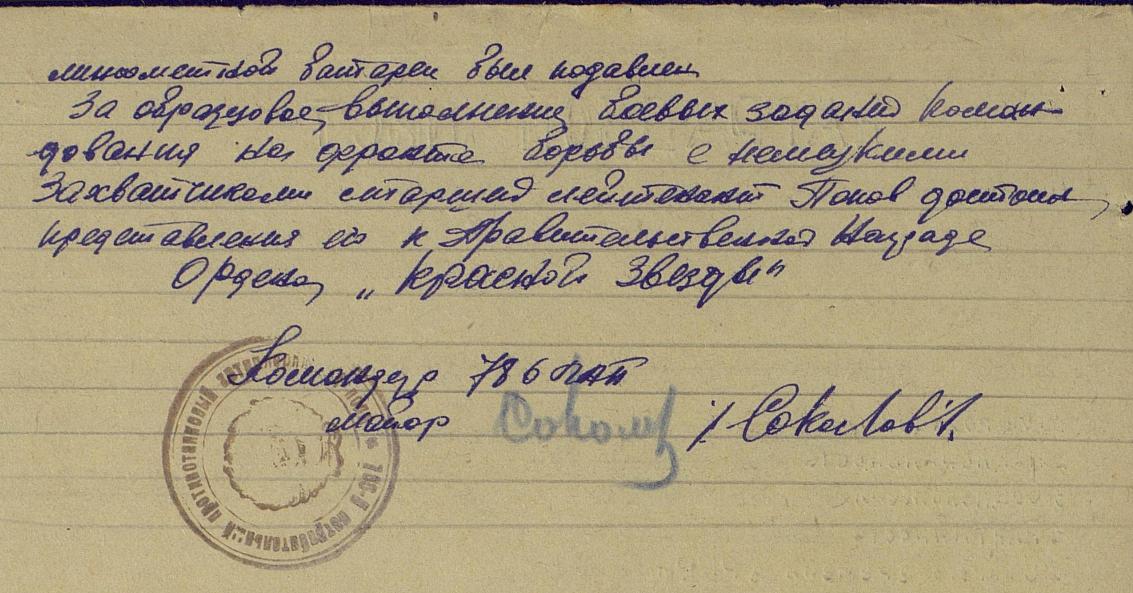 минометной батареи был подавлен
За образцовое выполнение боевых заданий коман-
дования на фронте борьбы с немецкими
захватчиками старший лейтенант Попов достоин
представления его к Правительственной Награде
Ордена „Красной Звезды"
Командир 786 ПАП
майор Соколов /Соколов/.
истребительный противотанковый артиллерийский